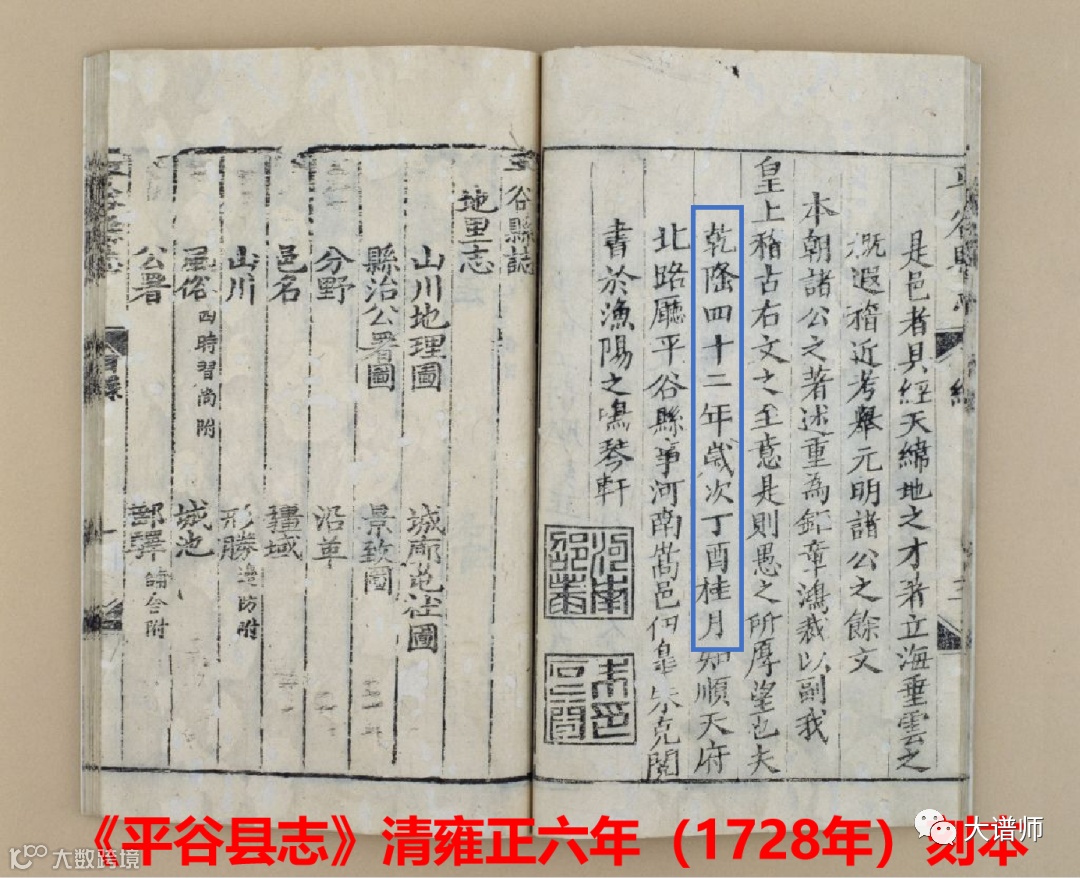 是邑者具經天緯地之才著立海垂雲之
概遐稽近考舉元明諸公之餘文
本朝諸公之著述重為鉅章鴻裁以副我
皇上稽古右文之至意是則愚之所厚望也夫
乾隆四十二年歲次丁酉桂月知順天府
北路廳平谷縣事河南嵩邑伊皋朱克閱
書於漁陽之鳴琴軒
平谷縣誌
地里志
山川地理圖 城廓屯社圖
縣治公署圖 景致圖
分野 沿革
邑名 疆域
山川 形勝邊防附
風俗四時習尚附 城池
公署 郵驛鋪舍附
《平谷县志》清雍正六年（1728年）刻本
大谱师
大数跨境